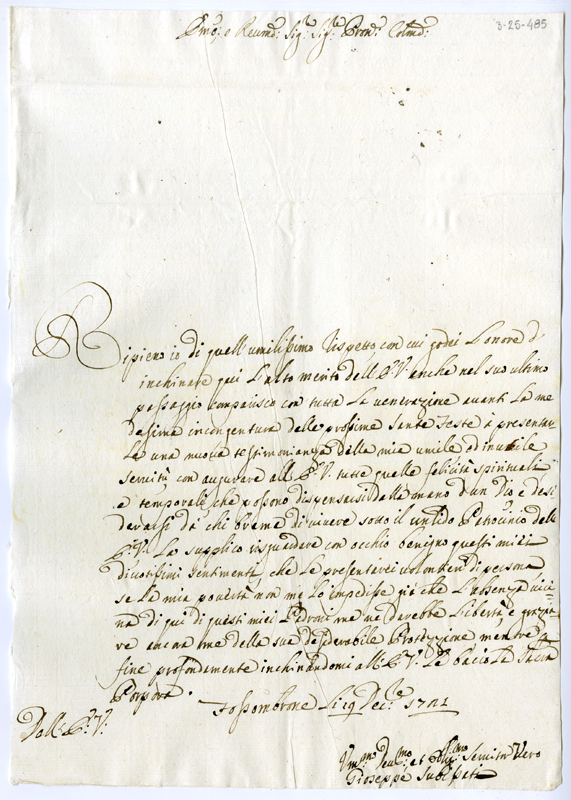 3-25-485
Emo: e Reumo: Sig:r Sig:r Pron: Colmo:
Ripieno io di quell'umilissimo rispetto con cui godei l'onore d'
inchinare qui l'alto merito dell'E:V: anche nel suo ultimo
passaggio comparisco con tutta la venerazione avanti la me
desima in congentura delle prossime Sante Feste à presentar
le una nuova testimonianza della mia umile ed inutile
servitù con augurare all'E:V: tutte quelle felicità spirituali
e temporali che possono dispensarsi dalla mano d'un Dio e desi
derarsi da chi brama di vivere sotto il valido Patrocinio dell'
E:V: La supplico risguardare con occhio benigno questi miei
divotissimi sentimenti, che le presentarei volontieri di persona
se la mia povertà non me lo impedisse già che l'absenza
di qui di questi miei Padroni me ne darebbe libertà, e
ancora me della sua desiderabile Protezzione mentre in
fine profondamente inchinandomi all'E:V: le bacio la Sacra
Porpora.
Fossombrone li 19 Dec:re 1721
Dell'E:V:
Um:mo Deu:mo et Obl:mo Servitor Vero
Gioseppe